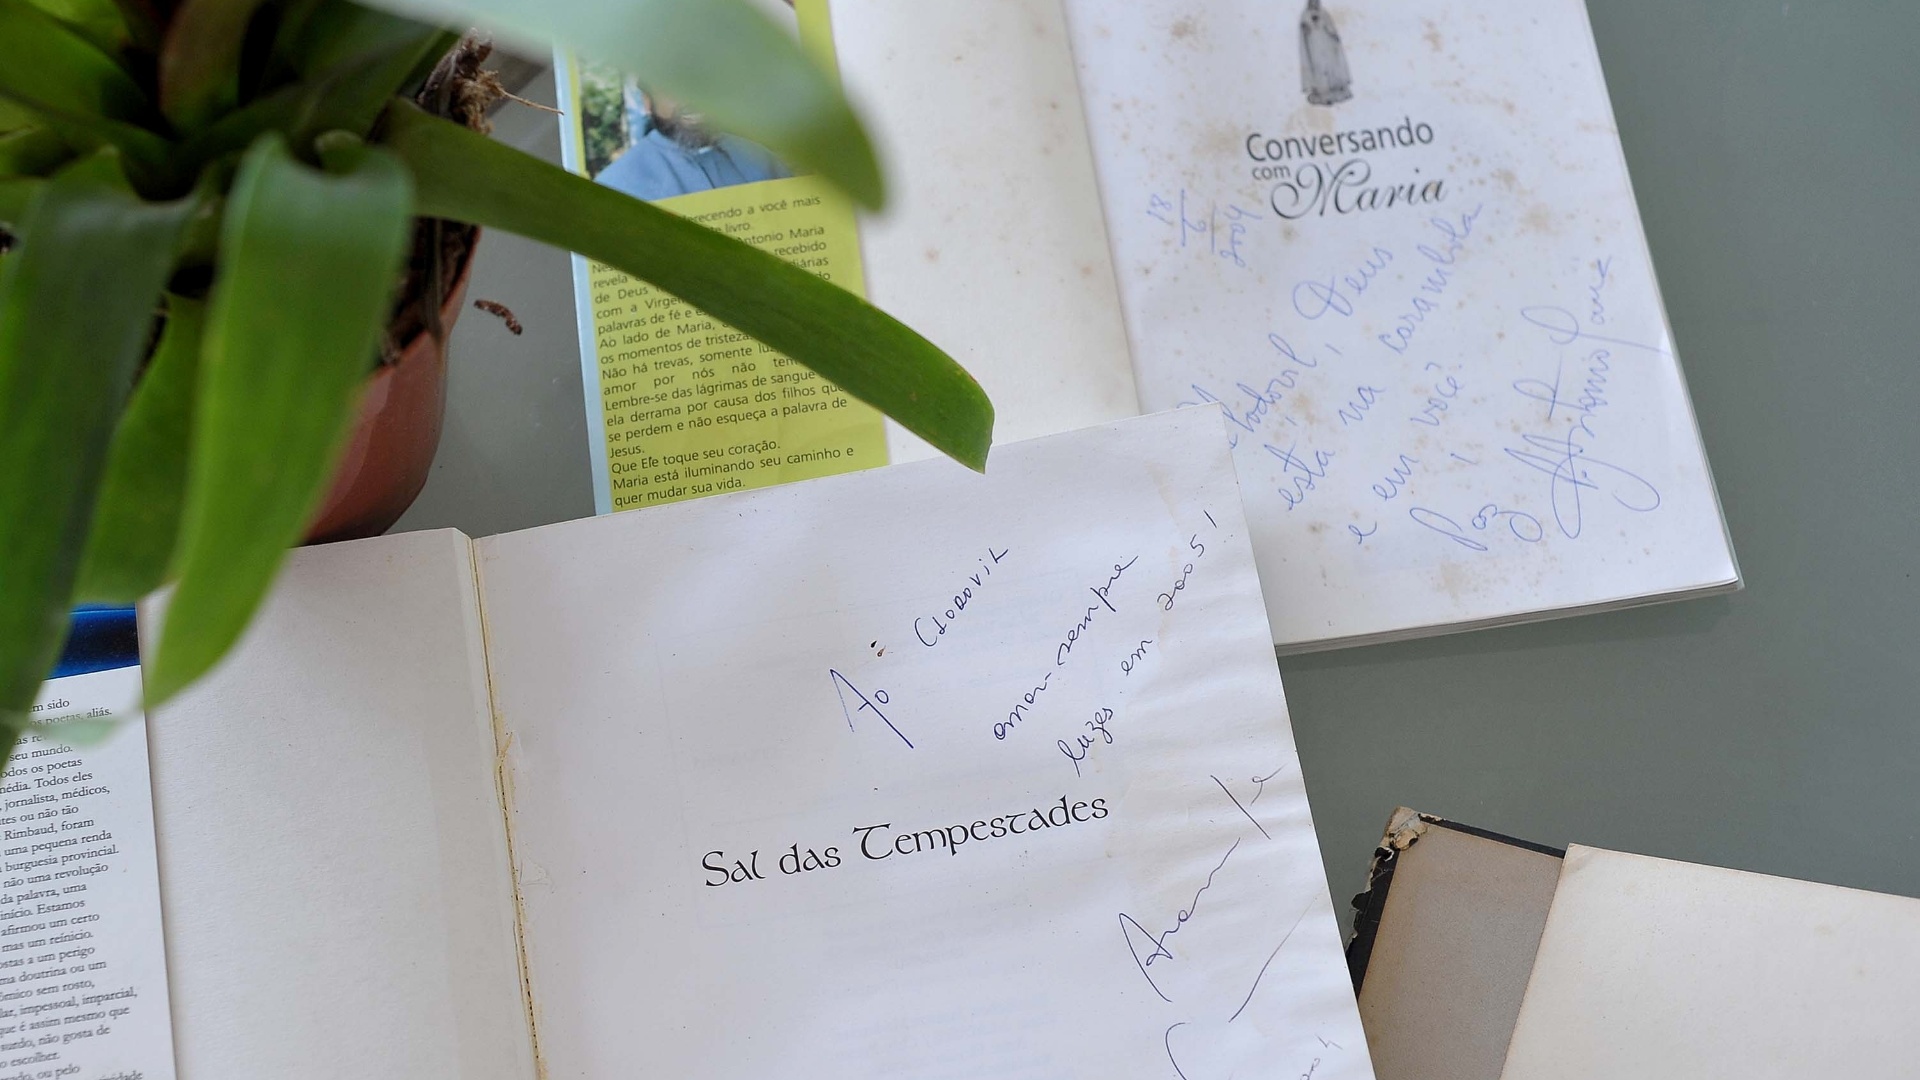 erecendo a você mais
te livro.
Antonio Maria
recebido
revela
de Deus
com a Virgem
palavras de fé e
Ao lado de Maria,
os momentos de tristeza
Não há trevas, somente
amor por nós não
Lembre-se das lágrimas de sangue
ela derrama por causa dos filhos que
se perdem e não esqueça a palavra de
Jesus.
Que Ele toque seu coração.
Maria está iluminando seu caminho e
quer mudar sua vida.
Conversando
com Maria
18
6
2004
Clodovil, Deus
está na carambola
e em você!
Antonio Maria
Ao: Clodovil
amor-sempre
luzes em 2005!
Sal das Tempestades
em sido
os poetas, aliás.
seu mundo.
odos os poetas
média. Todos eles
, jornalista, médicos,
tes ou não tão
Rimbaud, foram
uma pequena renda
burguesia provincial.
não uma revolução
da palavra, uma
início. Estamos
afirmou um certo
mas um reinício.
ostas a um perigo
ma doutrina ou um
ômico sem rosto,
lar, impessoal, imparcial,
que é assim mesmo que
suedo, não gosta de
o escolher.
ou pelo